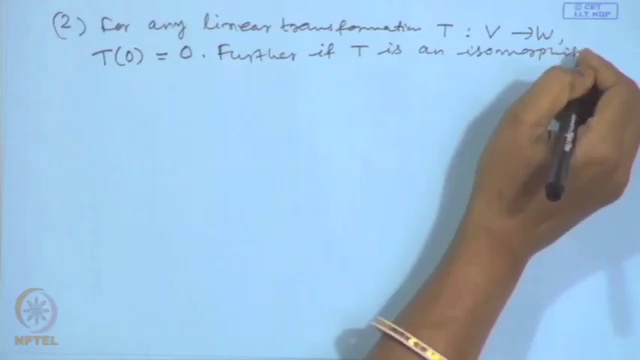 © CET
I.I.T. KGP
(2) For any linear transformation T : V → W,
T(0) = 0. Further if T is an isomorphis
NPTEL